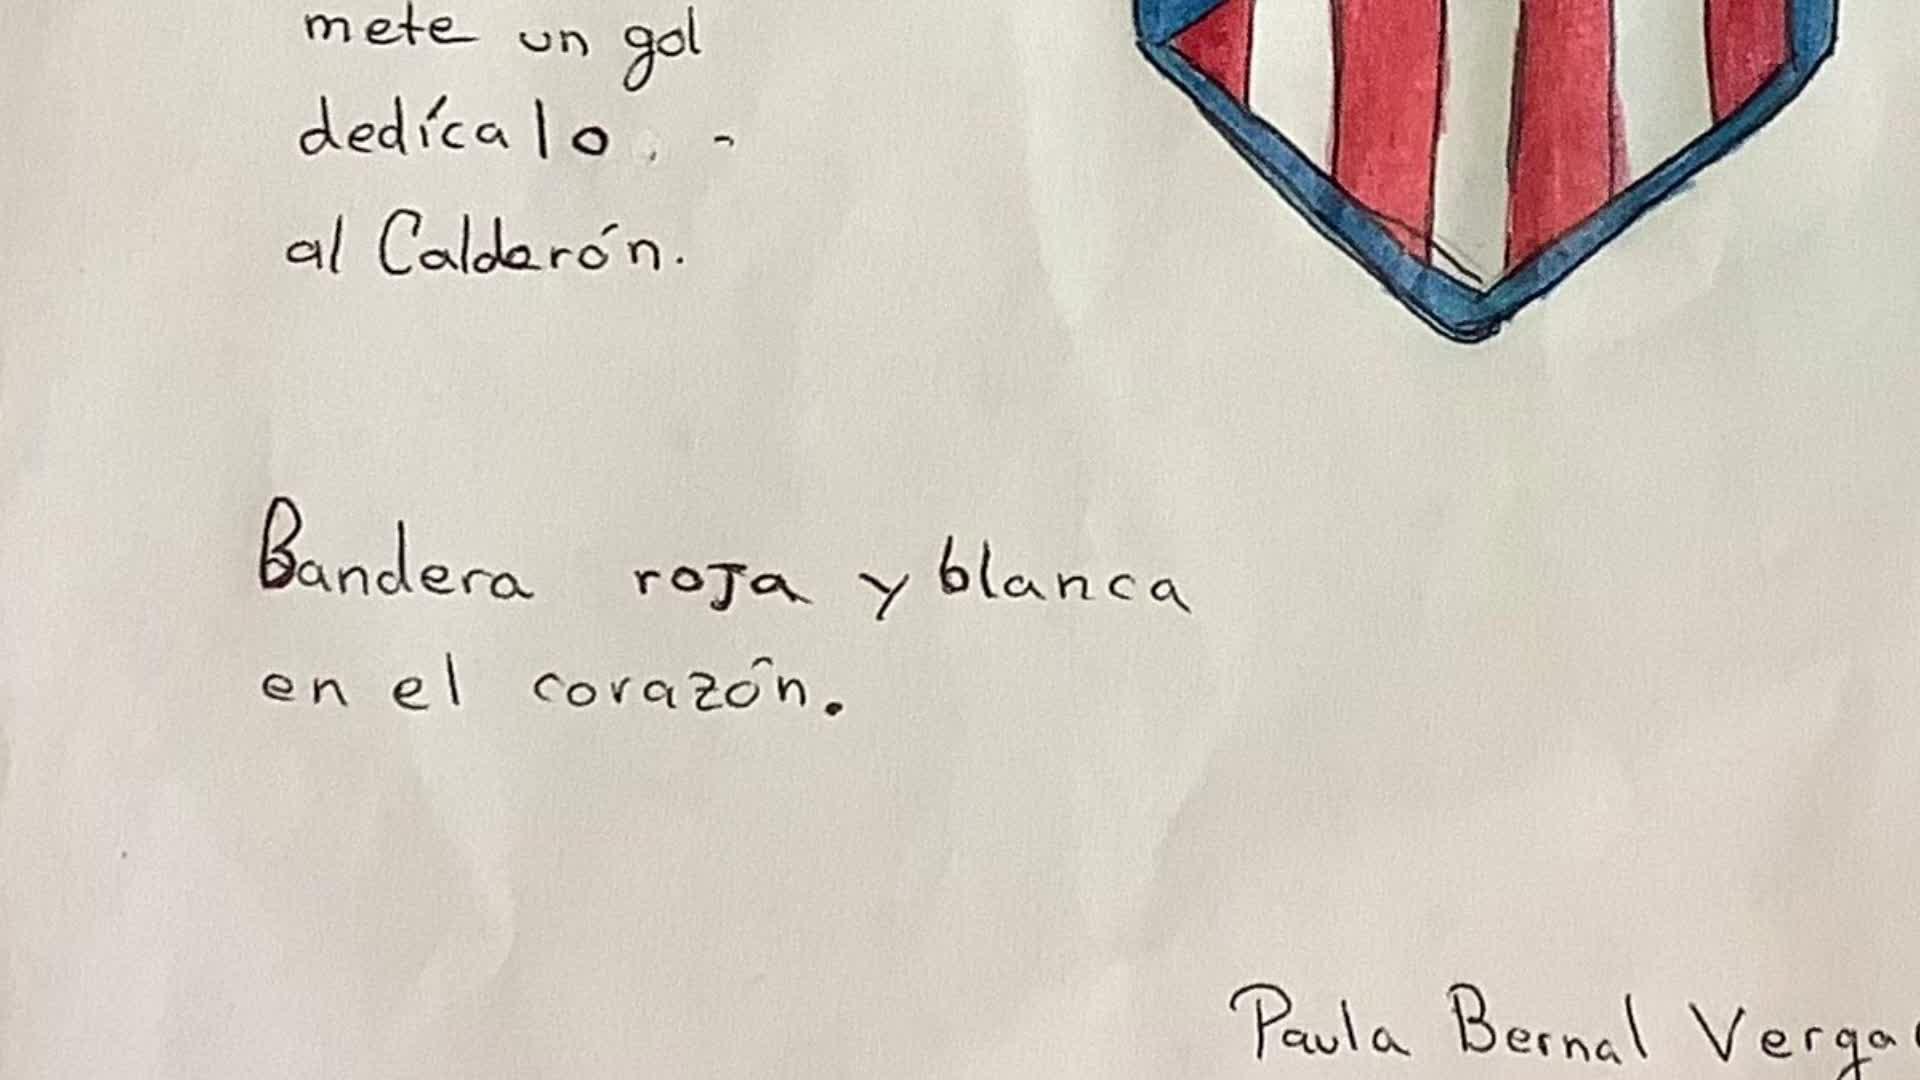 mete un gol
dedícalo
al Calderón.
Bandera roja y blanca
en el corazón.
Paula Bernal